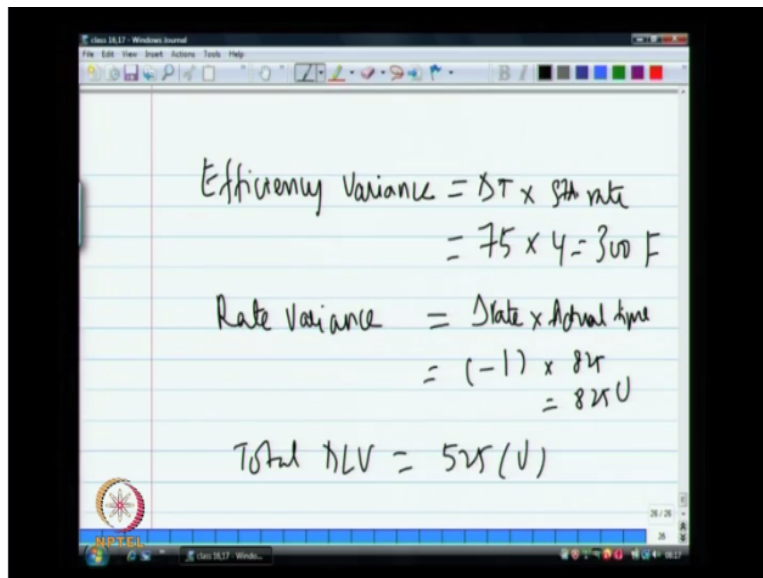 class 16,17 - Windows Journal
File Edit View Insert Actions Tools Help
B I
Efficiency Variance = ΔT × Std rate
= 75 × 4 = 300 F
Rate Variance = Δrate × Actual time
= (-1) × 825
= 825 U
Total DLV = 525 (U)
26 / 26
26
NPTEL
class 16,17 - Windo...
06:17